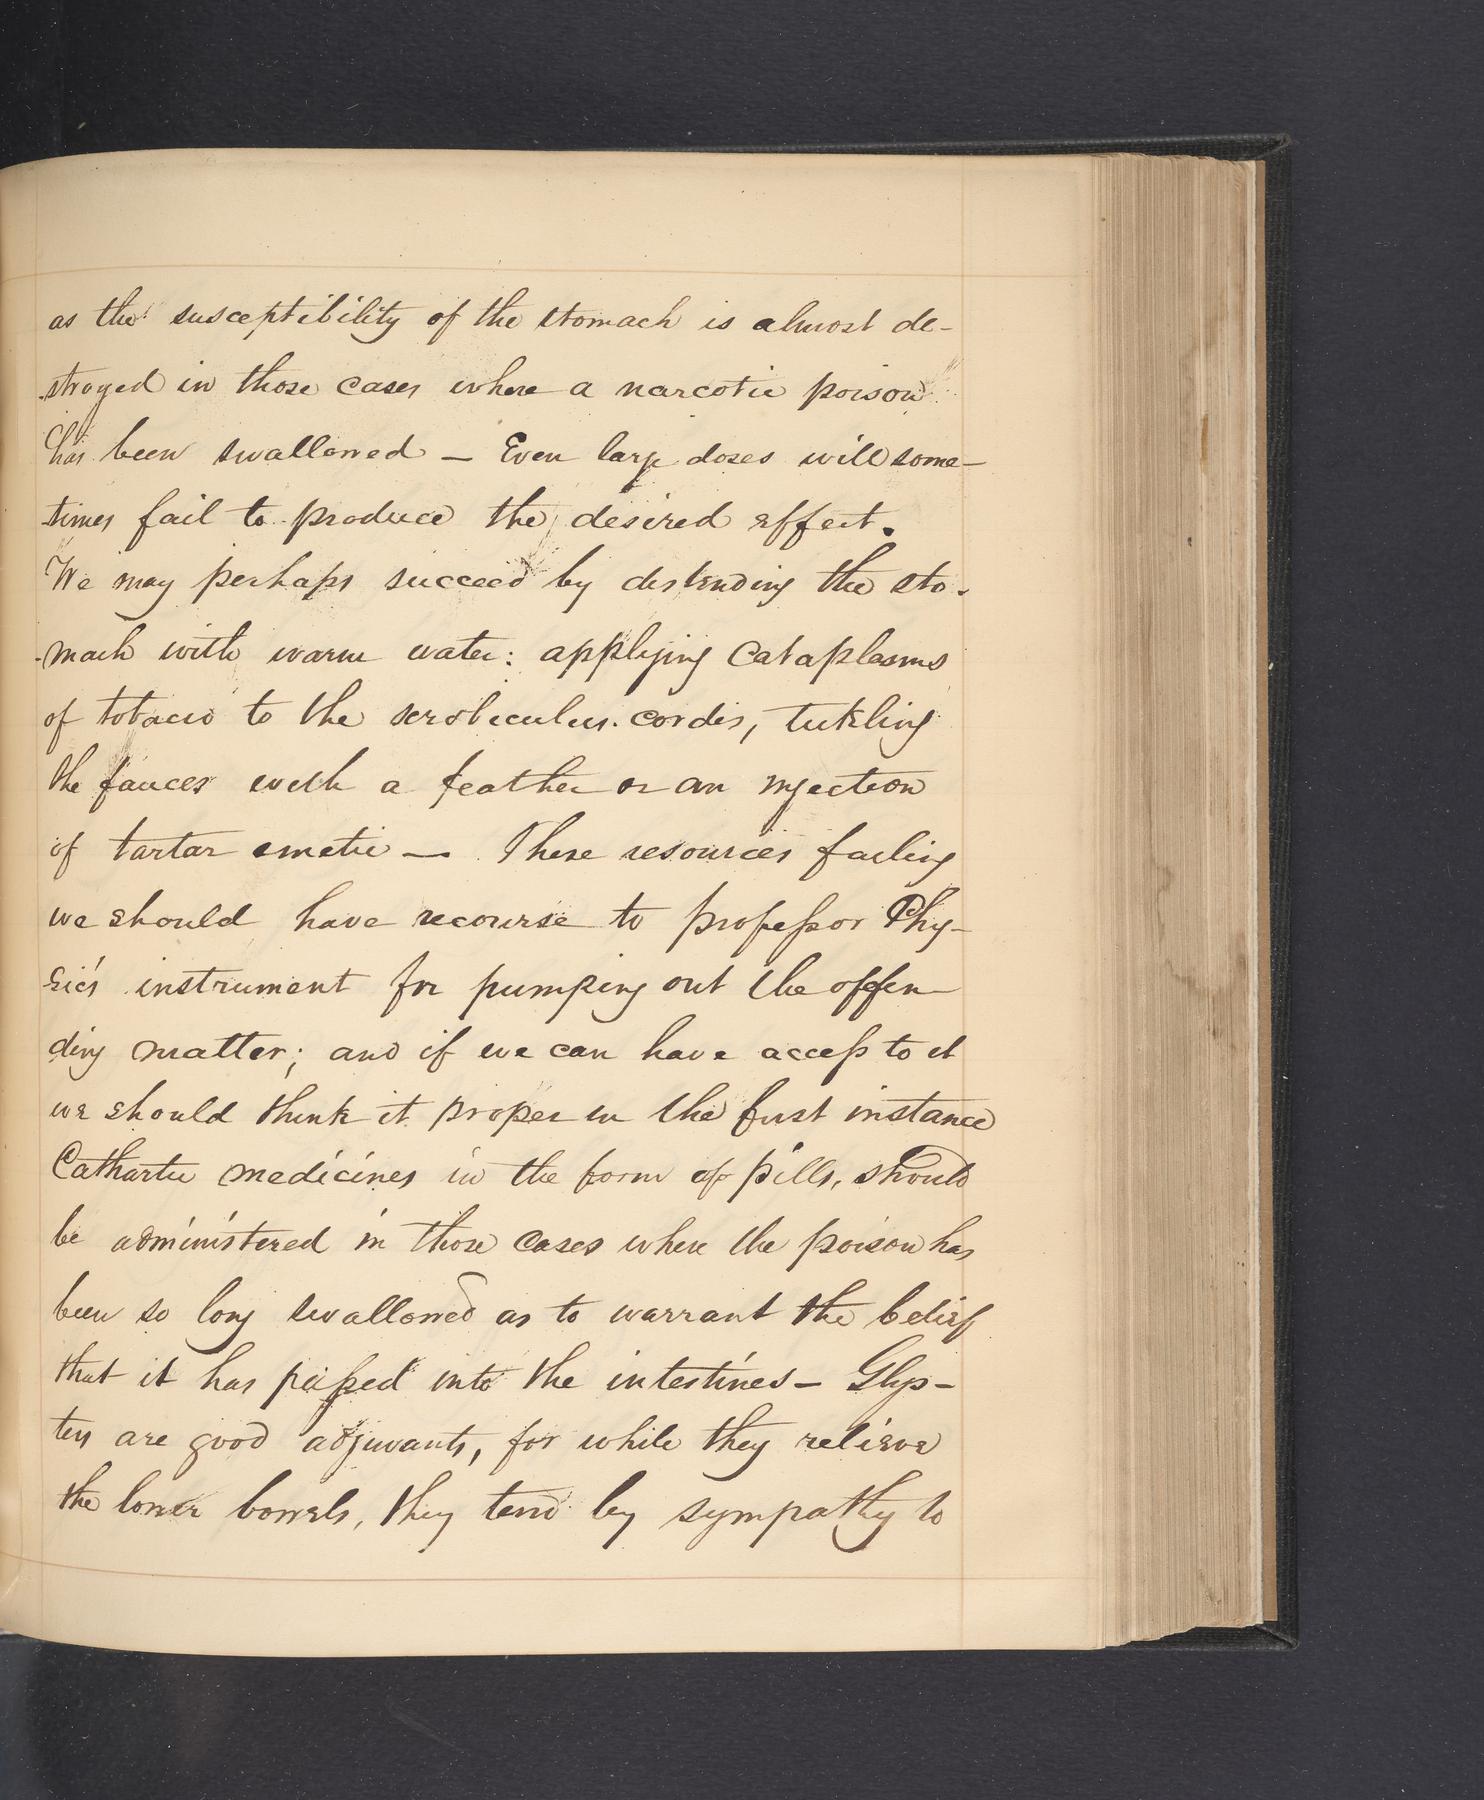 as the susceptibility of the stomach is almost de-
stroyed in those cases where a narcotic poison
has been swallowed — Even large doses will some-
times fail to produce the desired effect.
We may perhaps succeed by distending the sto-
-mach with warm water: applying Cataplasms
of tobacco to the scrobiculus cordis, tickling
the fauces with a feather or an injection
of tartar emetic — These resources failing
we should have recourse to professor Phy-
sic's instrument for pumping out the offen-
ding matter; and if we can have access to it
we should think it proper in the first instance
Cathartic medicines in the form of pills, should
be administered in those cases where the poison has
been so long swallowed as to warrant the belief
that it has passed into the intestines — Glys-
ters are good adjuvants, for while they relieve
the lower bowels, they tend by sympathy to